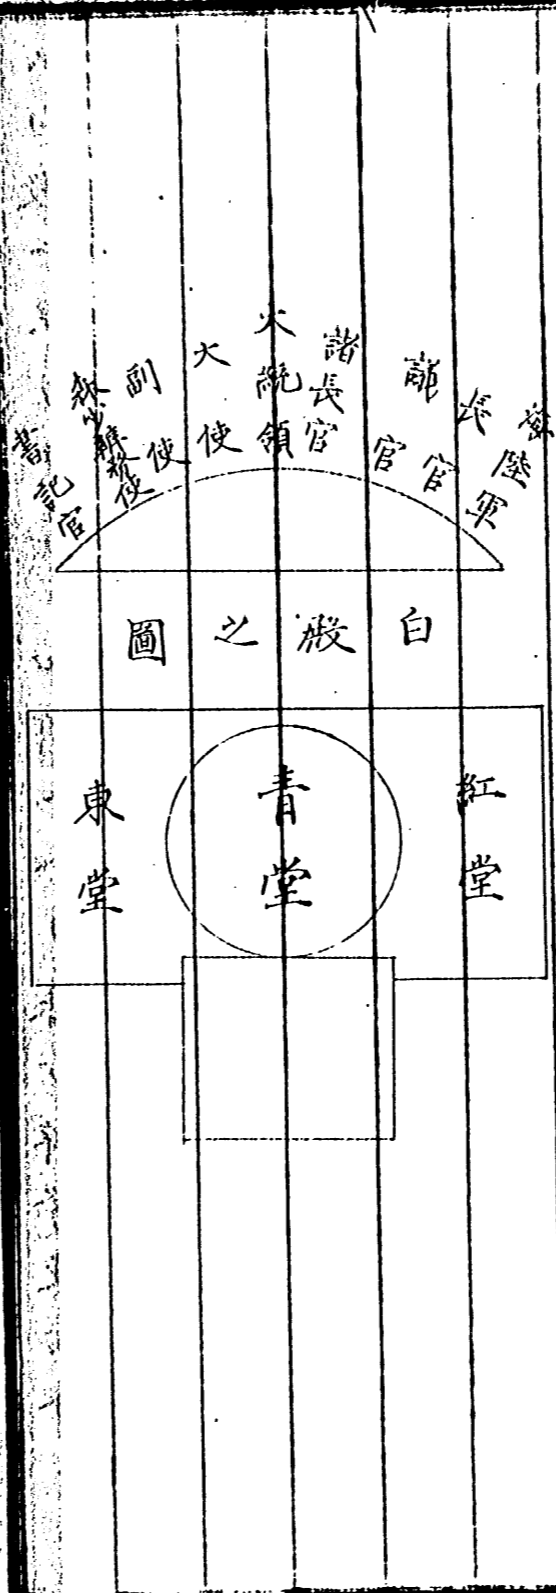 海陸軍
長官
諸官
諸長官
大統領
大使
副使
森少辨務使
書記官
白殿之圖
紅堂
青堂
東堂